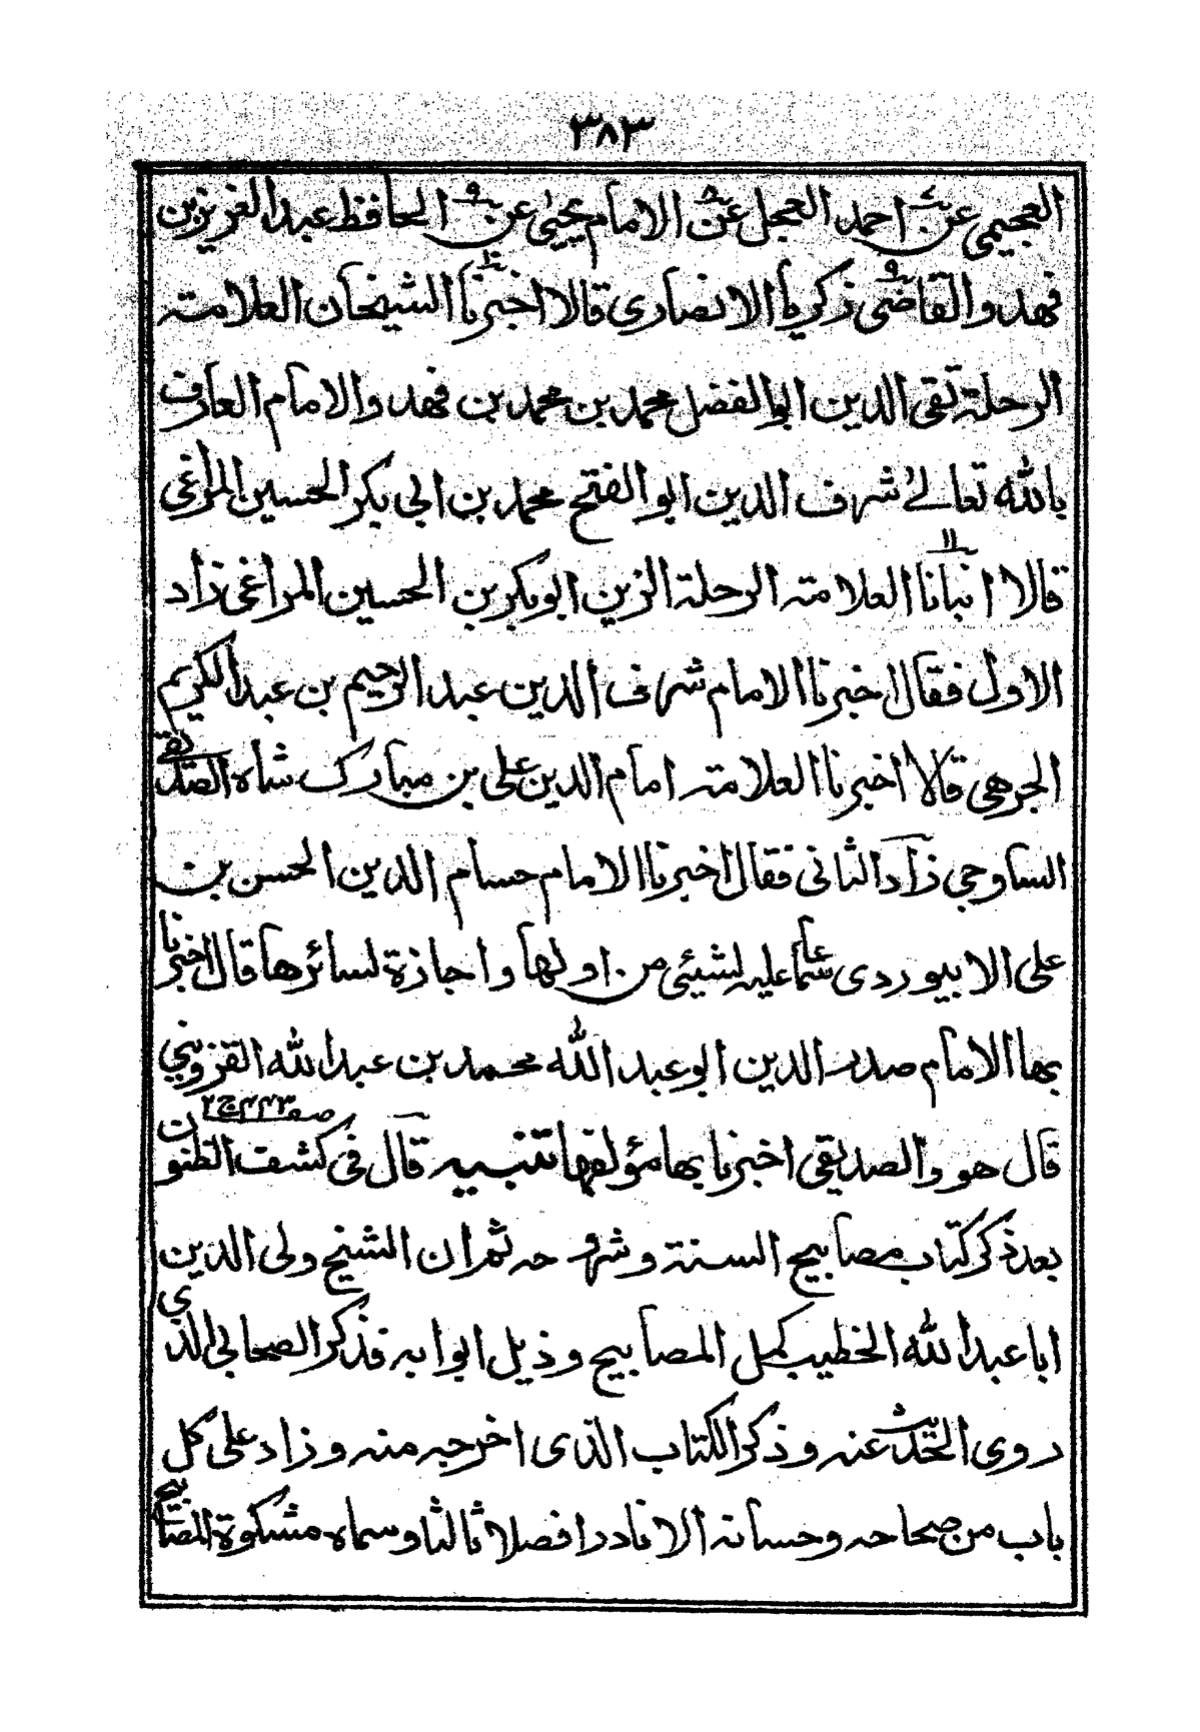 ٣٨٣
العجيمي عن احمد العجل عن الامام يحيى عن الحافظ عبد العزيز بن
فهد والقاضى زكريا الانصاري قالا اخبرنا الشيخان العلامة
الرحلة تقى الدين ابو الفضل محمد بن محمد بن فهد والامام العارف
بالله تعالى شرف الدين ابو الفتح محمد بن ابى بكر الحسين المراغى
قالا انبانا العلامة الرحلة الزين ابو بكر بن الحسين المراغى زاد
الاول فقال اخبرنا الامام شرف الدين عبد الرحيم بن عبد الكريم
الجرهى قالا اخبرنا العلامة امام الدين على بن مبارك شاه الصديقى
الساوجي زاد الثانى فقال اخبرنا الامام حسام الدين الحسن بن
على الابيوردى سماعا عليه لشيئى من اولها واجازة لسائرها قال اخبرنا
بها الامام صدر الدين ابو عبد الله محمد بن عبد الله القزويني
صفـ ٤٤٣ ج ٢
قال هو والصديقى اخبرنا بها مؤلفها تنبيه قال فى كشف الظنون
بعد ذكر كتاب مصابيح السنة وشروحه ثم ان الشيخ ولى الدين
ابا عبد الله الخطيب كمل المصابيح وذيل ابوابه فذكر الصحابى الذي
روى الحديث عنه وذكر الكتاب الذى اخرجه منه وزاد على كل
باب من صحاحه وحسانه الا نادرا فصلا ثالثا وسماه مشكوة المصابيح